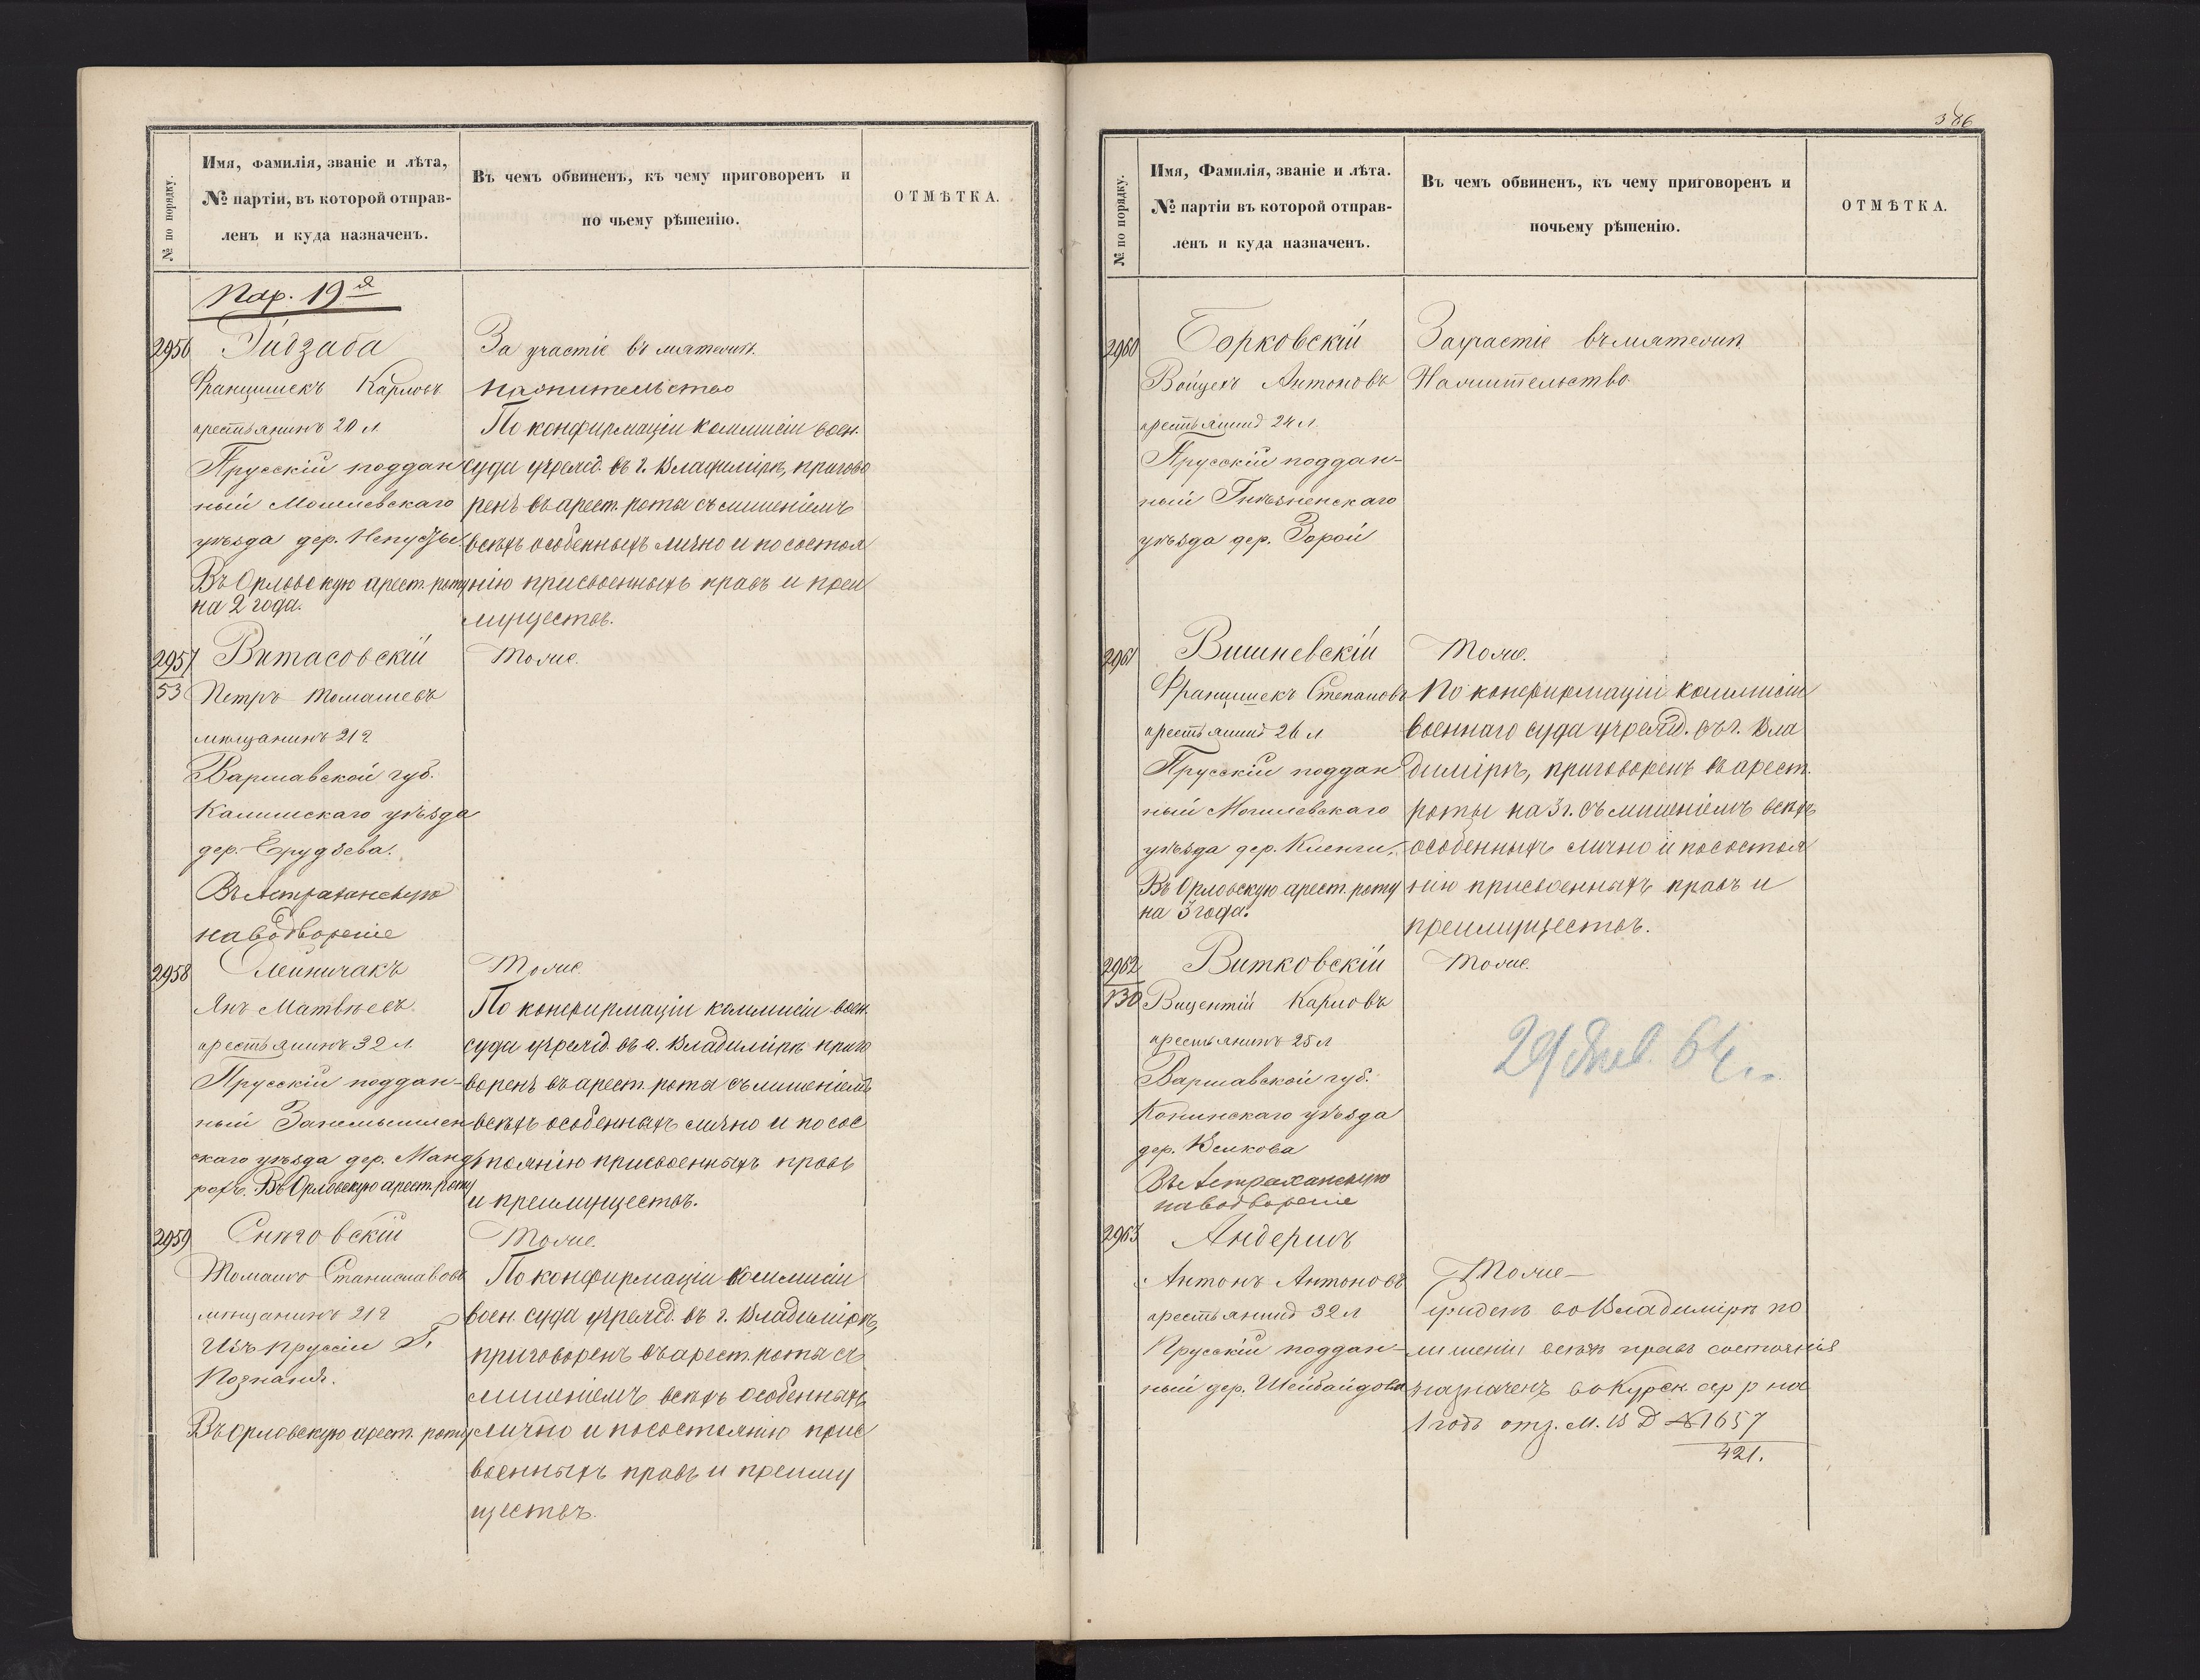 № по порядку.
Имя, Фамилія, званіе и лѣта,
№ партіи, въ которой отправ-
ленъ и куда назначенъ.
Въ чемъ обвиненъ, къ чему приговоренъ и
по чьему рѣшенію.
ОТМѢТКА.
Пар. 19я
2956
Гидзаба
Францишекъ Карловъ
крестьянинъ 20 л
Прусскій поддан
ный Могилевскаго
уѣзда дер.
Въ Орловскую арест. роту
на 2 года.
За участіе въ мятежѣ.
На жительство
По конфирмаціи коммисіи воен.
суда учрежд. въ г. Владимірѣ, пригово
ренъ въ арест. роты съ лишеніемъ
всѣхъ особенныхъ лично и по состоя
нію присвоенныхъ правъ и преи
муществъ.
2957
53
Витасовскій
Петръ Томашевъ
мѣщанинъ 21 г
Варшавской губ.
Калишскаго уѣзда
дер.
Въ Астраханскую
на водвореніе
Тоже.
2958
Олейничакъ
Янъ Матвѣевъ.
крестьянинъ 32 л.
Прусскій поддан-
ный
скаго уѣзда дер.
Въ Орловскую арест. роту
Тоже.
По конфирмаціи коммисіи воен.
суда учрежд. въ г. Владимірѣ приго
воренъ въ арест. роты съ лишеніемъ
всѣхъ особенныхъ лично и по сос
тоянію присвоенныхъ правъ
и преимуществъ.
2959
Снѣговскій
Томашъ Станиславовъ
мѣщанинъ 21 г
Изъ Пруссіи Г.
Познаня.
Въ Орловскую арест. роту
Тоже.
По конфирмаціи коммисіи
воен. суда учрежд. въ г. Владимірѣ,
приговоренъ въ арест. роты съ
лишеніемъ всѣхъ особенныхъ
лично и по состоянію прис
военныхъ правъ и преиму
ществъ.
386
№ по порядку.
Имя, Фамилія, званіе и лѣта.
№ партіи въ которой отправ-
ленъ и куда назначенъ.
Въ чемъ обвиненъ, къ чему приговоренъ и
почьему рѣшенію.
ОТМѢТКА.
2960
Борковскій
Войцехъ Антоновъ
крестьянинъ 24 л.
Прусскій поддан-
ный Гнѣзненскаго
уѣзда дер. Зорой
За участіе въ мятежѣ
На жительство.
2961
Вишневскій
Францишекъ Степановъ
крестьянинъ 26 л
Прусскій поддан
ный Могилевскаго
уѣзда дер.
Въ Орловскую арест. роту
на 3 года.
Тоже.
По конфирмаціи коммисіи
военнаго суда учрежд. въ г. Вла
димірѣ, приговоренъ въ арест.
роты на 3 г. съ лишеніемъ всѣхъ
особенныхъ лично и по состоя
нію присвоенныхъ правъ и
преимуществъ.
2962
130
Витковскій
Вицентій Карловъ
крестьянинъ 25 л
Варшавской губ.
Конинскаго уѣзда
дер. Велкова
Въ Астраханскую
на водвореніе
Тоже.
29 Янв. 64 г.
2963
Андершъ
Антонъ Антоновъ
крестьянинъ 32 л
Прусскій поддан-
ный дер.
Тоже —
во Владимірѣ по
лишеніи всѣхъ правъ состоянія
назначенъ въ Курск. ар р на
1 годъ отз. М. В Д № 1657
421.